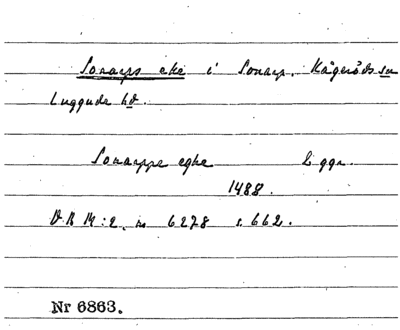 Sonarps eke i Sonarp. Kågeröds sn
Luggude hd.
Sonarppe eghe L ggr.
1488.
D B M:2. n 6278 s. 662.
Nr 6863.